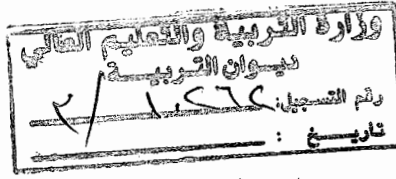 وزارة التربية والتعليم العالي
ديوان التربية
رقم التسجيل:
تاريخ :